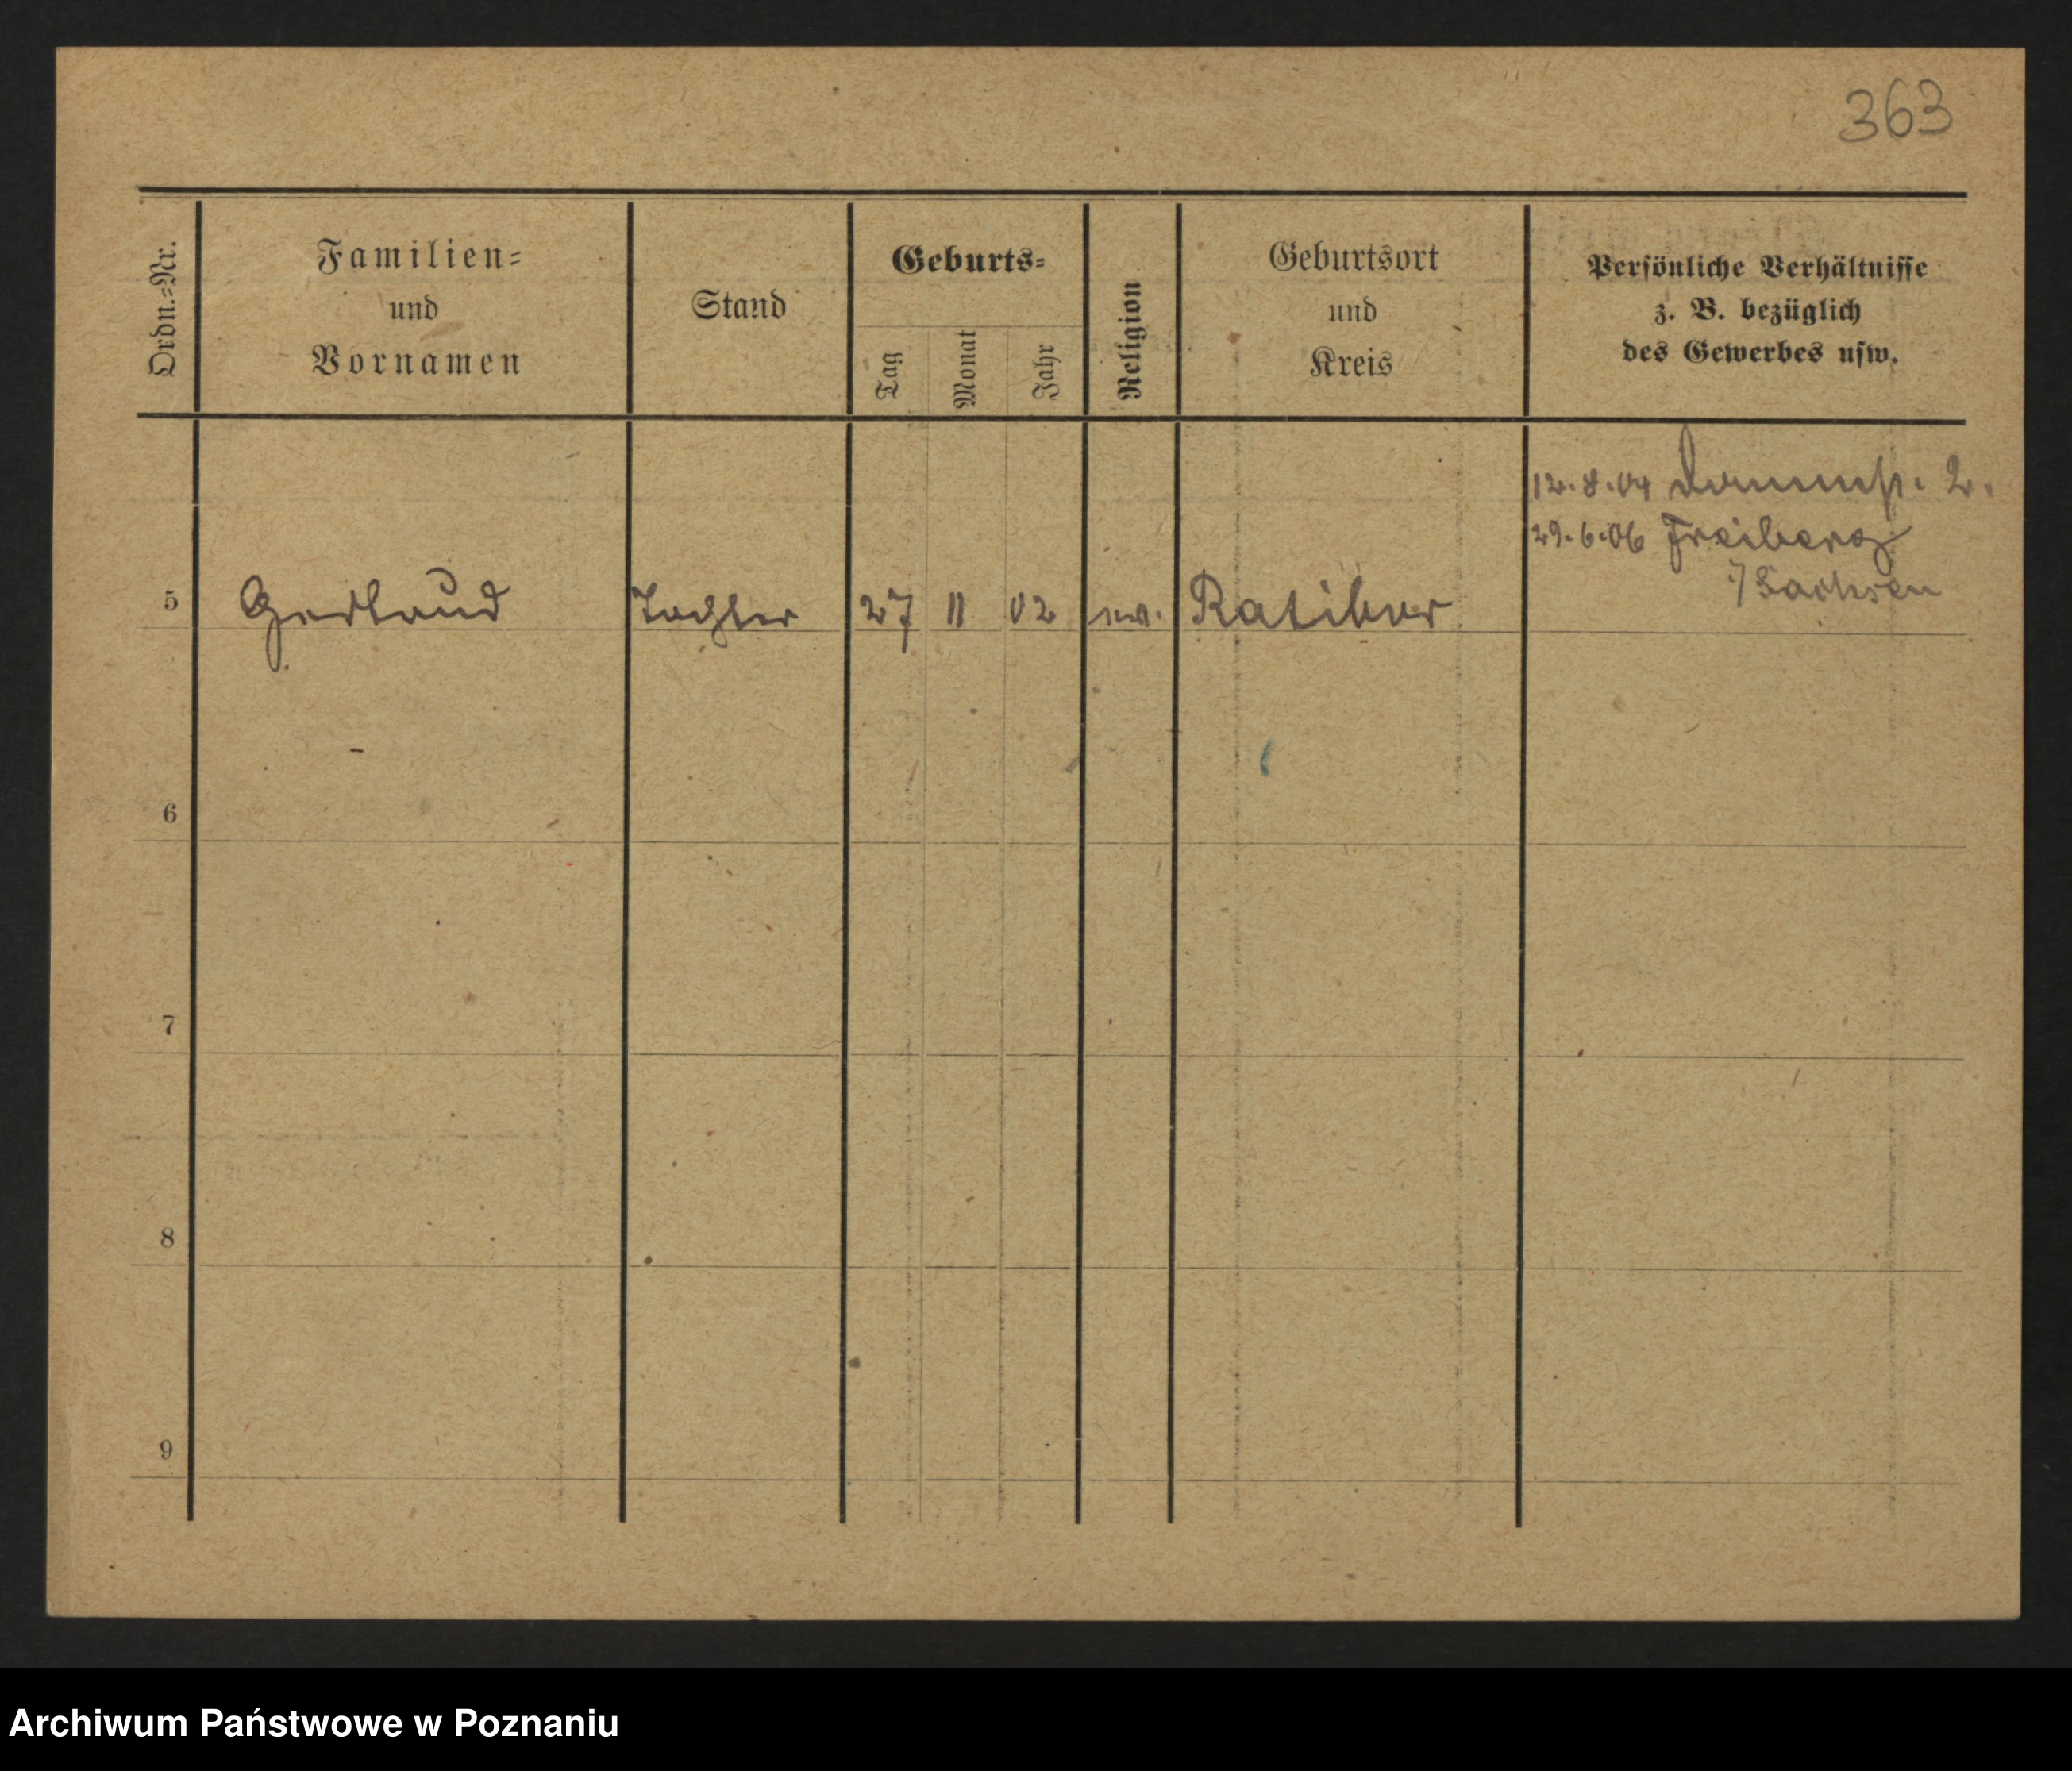 363
Ordn.-Nr.
Familien-
und
Vornamen
Stand
Geburts-
Tag
Monat
Jahr
Religion
Geburtsort
und
Kreis
Persönliche Verhältnisse
z. B. bezüglich
des Gewerbes usw.
12.8.04 2.
29.6.06 Freiberg
i/Sachsen
5 Gertraud Tochter 27 11 02 ev. Ratibor
6
7
8
9
Archiwum Państwowe w Poznaniu